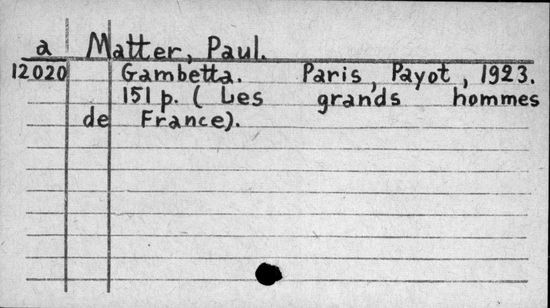 a Matter, Paul.
12020 Gambetta. Paris, Payot, 1923.
151 p. ( Les grands hommes
de France).